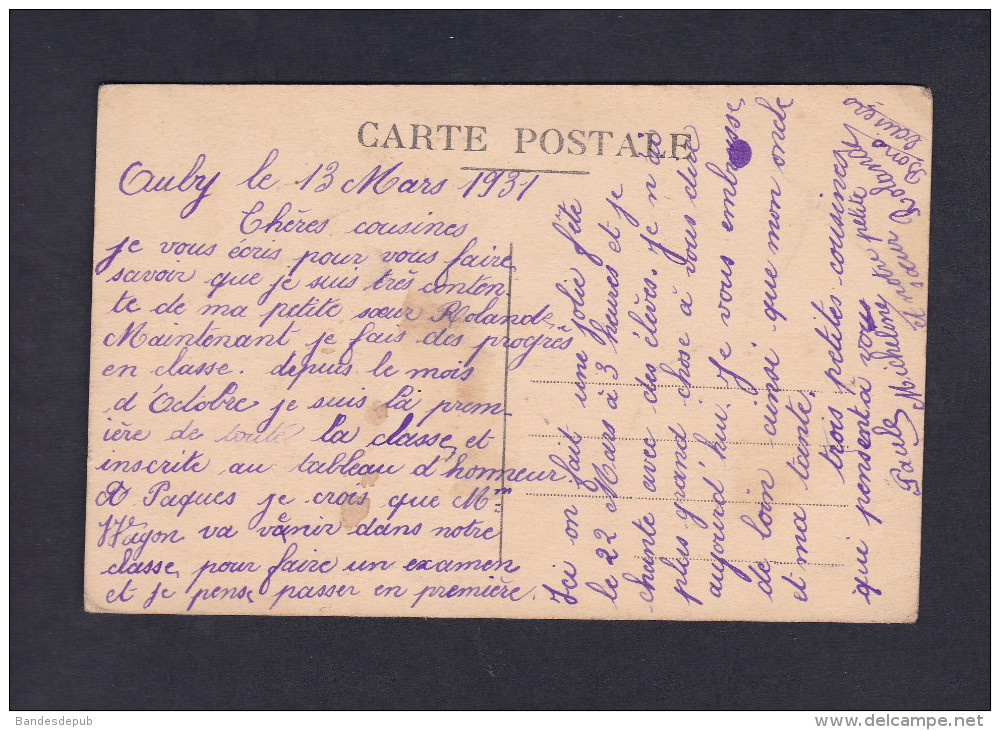 CARTE POSTALE
Auby le 13 Mars 1931
Chères cousines
je vous écris pour vous faire
savoir que je suis très conten-
te de ma petite sœur Rolande.
Maintenant je fais des progrès
en classe. depuis le mois
d'Octobre je suis la prem-
ière de toute la classe, et
inscrite au tableau d'honneur
A Paques je crois que Mme
Wagon va venir dans notre
classe, pour faire un examen
et je pense passer en première.
Ici on fait une jolie fête
le 22 Mars à 3 heures et je
chante avec des élèves. Je n'ai
plus grand chose à vous dire
aujourd'hui. Je vous embrasse
de loin ainsi que mon oncle
et ma tante.
trois petites cousines
qui pensent à vous
Paule, Micheline votre petite
et sœur Rolande
Bons
Bandesdepub
delcampe.net